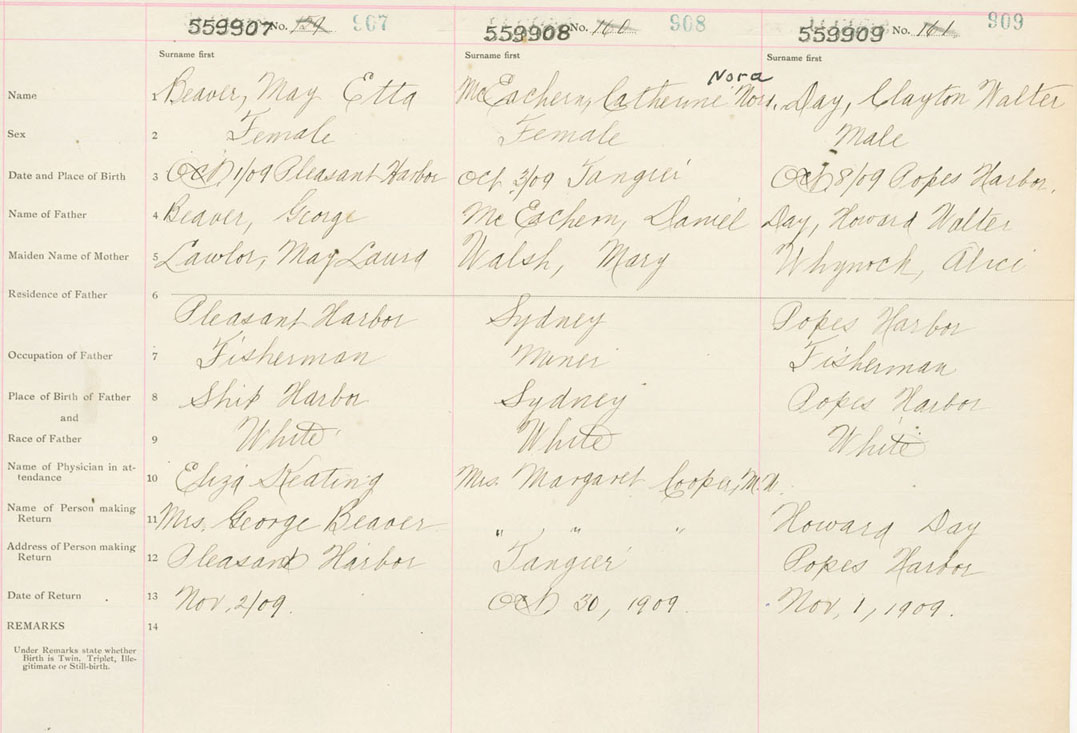 559907 No. 159 907 559908 No. 160 908 559909 No. 161 909
Surname first Surname first Surname first
Nora
Name 1 Beaver, May Etta McEachern, Catherine Nora. Day, Clayton Walter
Sex 2 Female Female Male
Date and Place of Birth 3 Oct 1/09 Pleasant Harbor Oct 3/09 Tangier Oct 8/09 Popes Harbor.
Name of Father 4 Beaver, George McEachern, Daniel Day, Howard Walter
Maiden Name of Mother 5 Lawlor, May Laura Walsh, Mary Whynock, Alice
Residence of Father 6
Pleasant Harbor Sydney Popes Harbor
Occupation of Father 7 Fisherman Miner Fisherman
Place of Birth of Father 8 Ship Harbor Sydney Popes Harbor
and
Race of Father 9 White White White
Name of Physician in at-
tendance 10 Eliza Keating Mrs. Margaret Cooper,
Name of Person making
Return 11 Mrs. George Beaver " " " Howard Day
Address of Person making
Return 12 Pleasant Harbor Tangier Popes Harbor
Date of Return 13 Nov, 2/09. Oct 30, 1909. Nov, 1, 1909.
REMARKS 14
Under Remarks state whether
Birth is Twin, Triplet, Ille-
gitimate or Still-birth.